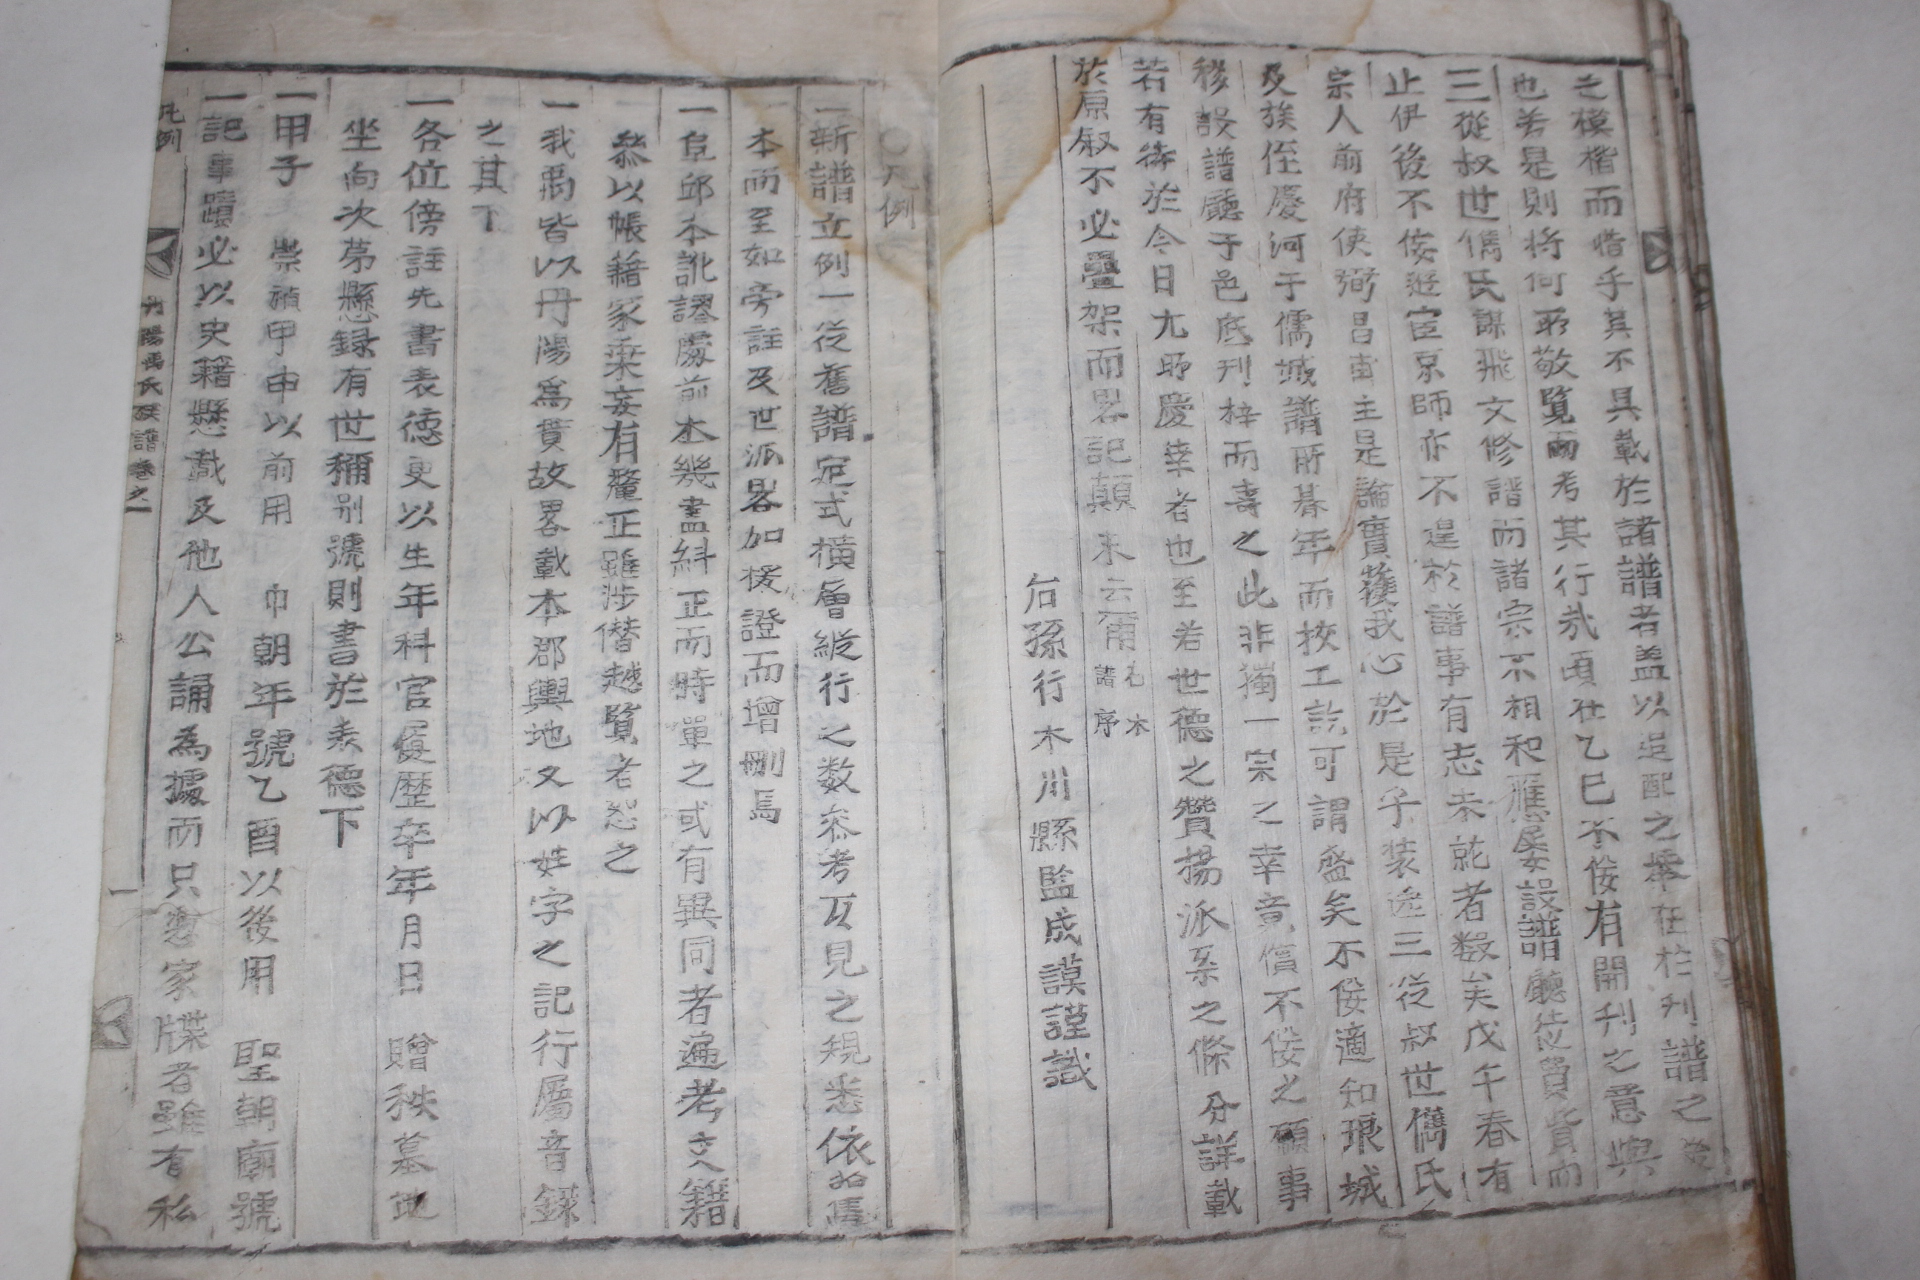 之模楷而惜乎其不具載於諸譜者盖以追配之擧在於刋譜之後
也若是則將何取敬覽而考其行哉頃在乙巳不佞有開刋之意與
三從叔世儁氏謀飛文修譜而諸宗不相和應屢設譜廳徒費貲而
止伊後不佞逰宦京師亦不遑於譜事有志未就者数矣戊午春有
宗人前府使弼昌甫主是論實獲我心於是乎装送三從叔世儁氏
及族侄慶河于儒城譜所朞年而校工訖可謂盛矣不佞適知琅城
移設譜廳于邑底刋梓而壽之此非獨一宗之幸竟償不佞之願事
若有待於今日尤助慶幸者也至若世德之贊揚派系之條分詳載
於原叙不必疊架而畧記顚末云爾 右木譜序
后孫行木川縣監成謨謹識
○凡例
一新譜立例一從舊譜定式橫層縱行之数叅考互見之規悉依焉
本而至如旁註及世派畧加援證而增刪焉
一良邱本訛謬處前本幾盡糾正而時單之或有異同者遍考文籍
叅以帳籍家乗妄有釐正雖涉僭越覽者恕之
一我禹皆以丹陽爲貫故畧載本郡輿地又以姓字之記行屬音錄
之其下
一各位傍註先書表德更以生年科官履歷卒年月日 贈秩墓地
坐向次苐懸録有世稱别號則書於表德下
一甲子 崇禎甲申以前用 巾朝年號乙酉以後用 聖朝廟號
一記事蹟必以史籍懸載及他人公誦為據而只憑家牒者雖有私
凡例 丹陽禹氏族譜卷之一 一